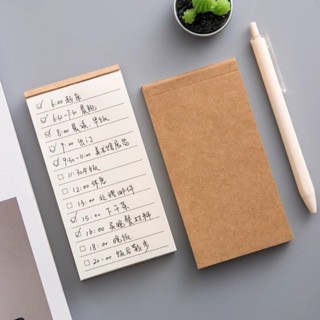 ☑ 6:00 起床
☑ 6:20-7:30 晨跑
☑ 8:00 晨读、早饭
☑ 9:00 出门
☑ 9:30-11:00
☐ 11:30 午饭
☐ 12:00 休息
☐ 13:00 处理邮件
☑ 15:00 下午茶
☑ 16:00 准备餐材料
☐ 18:00 晚饭
☐ 20:00 饭后散步